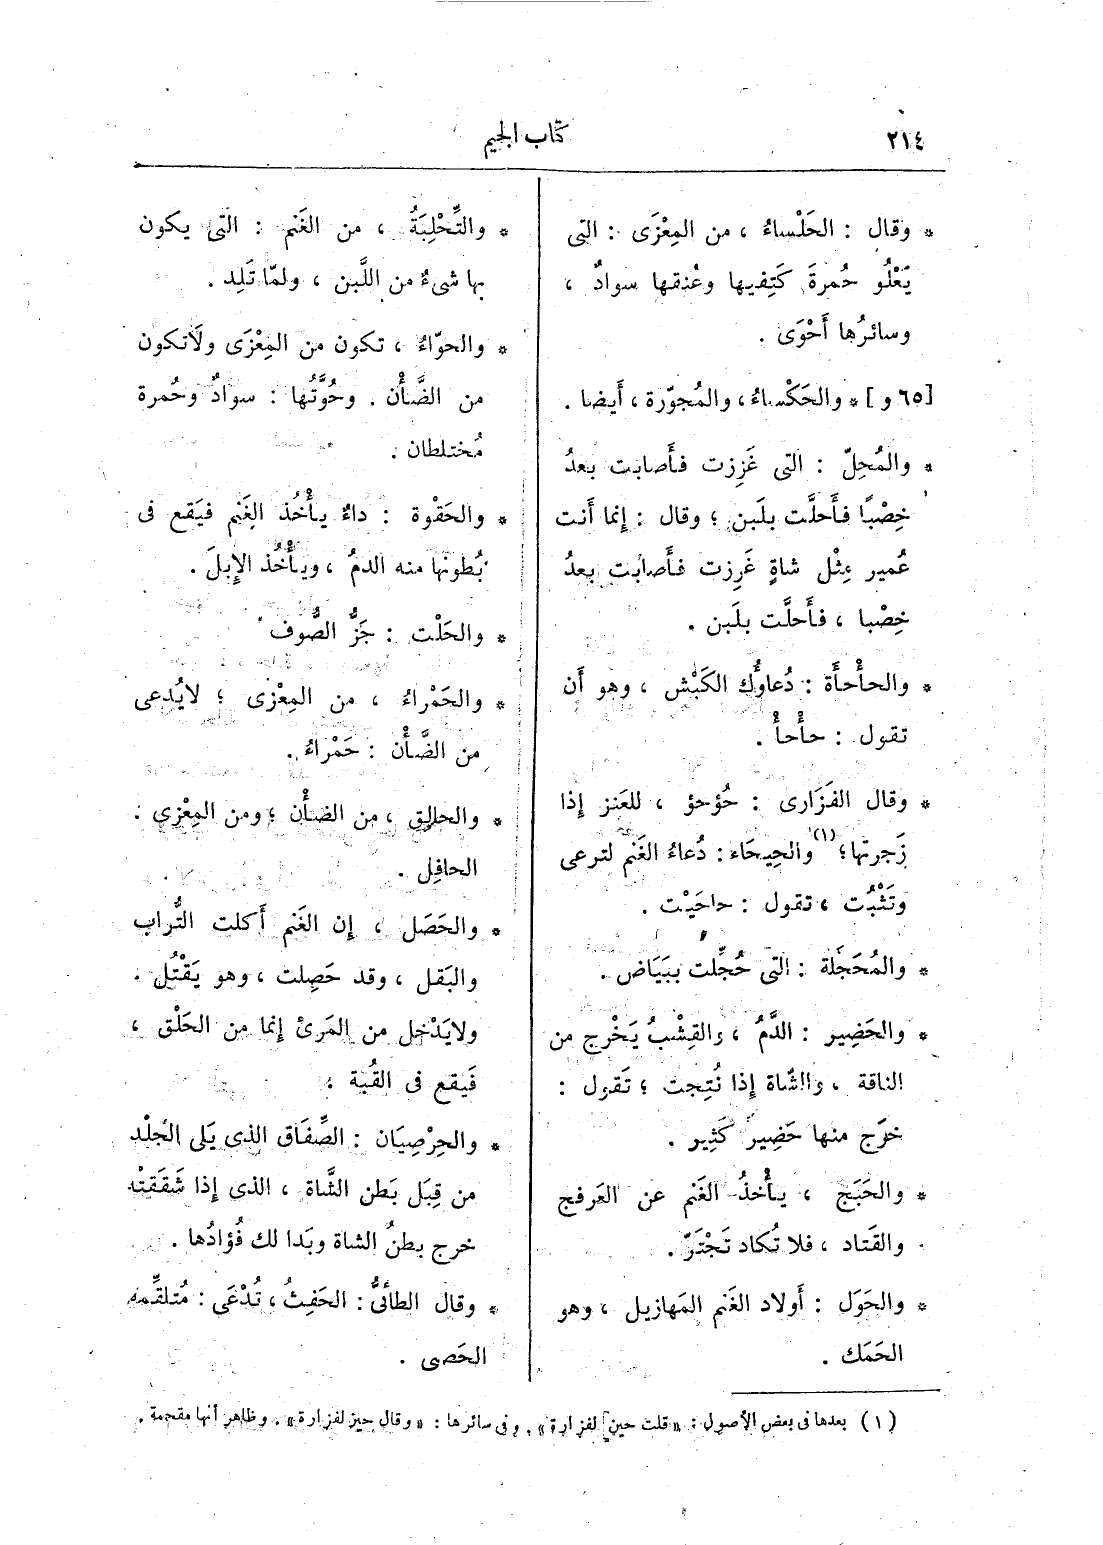 ٢١٤
كتاب الجيم
* وقال : الحَلْساءُ ، من المِعْزَى : التى
يَعْلُو حُمرةَ كَتِفيها وعُنقها سوادٌ ،
وسائرُها أَحْوَى .
[٦٥ و] * والحَكْساءُ، والمُجوّرة ، أَيضا .
* والمُحِلّ : التى غَرِزت فأَصابت بعدُ
خِصْبًا فأَحلَّت بلَبن ؛ وقال : إنما أَنت
عُمير مِثْل شاةٍ غَرِزت فأَصابت بعدُ
خِصْبا ، فأَحلَّت بلَبن .
* والحأْحأَة : دُعاوُك الكَبْش ، وهو أَن
تقول : حأْحأْ .
* وقال الفَزَارى : حُؤحؤ ، للعَنز إذا
زَجرتها؛ (١) والحِيحَاء : دُعاءُ الغَنم لترعى
وتَثْبُت ، تقول : حاحَيْت .
* والمُحَجلة : التى حُجِّلت ببَيَاض .
* والحَضِير : الدَّمُ ، والقِشْبُ يَخْرج من
الناقة ، والشّاة إذا نُتِجت ؛ تَقول :
خرَج منها حَضِيرٌ كَثِير .
* والحَبَج ، يأْخذُ الغَنم عن العَرفج
والقَتاد ، فلا تُكاد تَجْتَرّ .
* والحَوَل : أَولاد الغَنم المَهازيل ، وهو
الحَمَك .
* والتِّحْلِبَةُ ، من الغَنم : التى يكون
بها شىءٌ من اللَّبن ، ولمّا تَلِد .
* والحوّاءُ ، تكون من المِعْزَى ولَاتكون
من الضَّأْن . وحُوَّتُها : سوادٌ وحُمرة
مُختلطان .
* والحَقْوة : داءٌ يأْخُذ الغَنم فيَقع فى
بُطونها منه الدمُ ، ويأْخُذ الإبلَ .
* والحَلْت : جَزُّ الصُّوف
* والحَمْراءُ ، من المِعْزى ؛ لايُدعى
من الضَّأْن : حَمْراءُ .
* والحالِق ، من الضأْن ؛ ومن المِعْزى :
الحافِل .
* والحَصَل ، إن الغَنم أَكلت التُّراب
والبَقل ، وقد حَصِلت ، وهو يَقْتُل .
ولايَدْخل من المَرئ إنما من الحَلْق ،
فَيقع فى القُبة .
* والحِرْصِيَان : الصِّفَاق الذى يَلى الجُلْد
من قِبَل بَطن الشَّاة ، الذى إذا شَقَقتْه
خرج بطنُ الشاة وبَدا لك فُؤادُها .
* وقال الطائىُّ : الحَفِثُ ، تُدْعَى : مُتلقِّمه
الحَصى .
(١) بعدها فى بعض الأصول : « قلت حين لفزارة » . وفى سائرها : « وقال حيز لفزارة » . وظاهر أنها مقحمة .